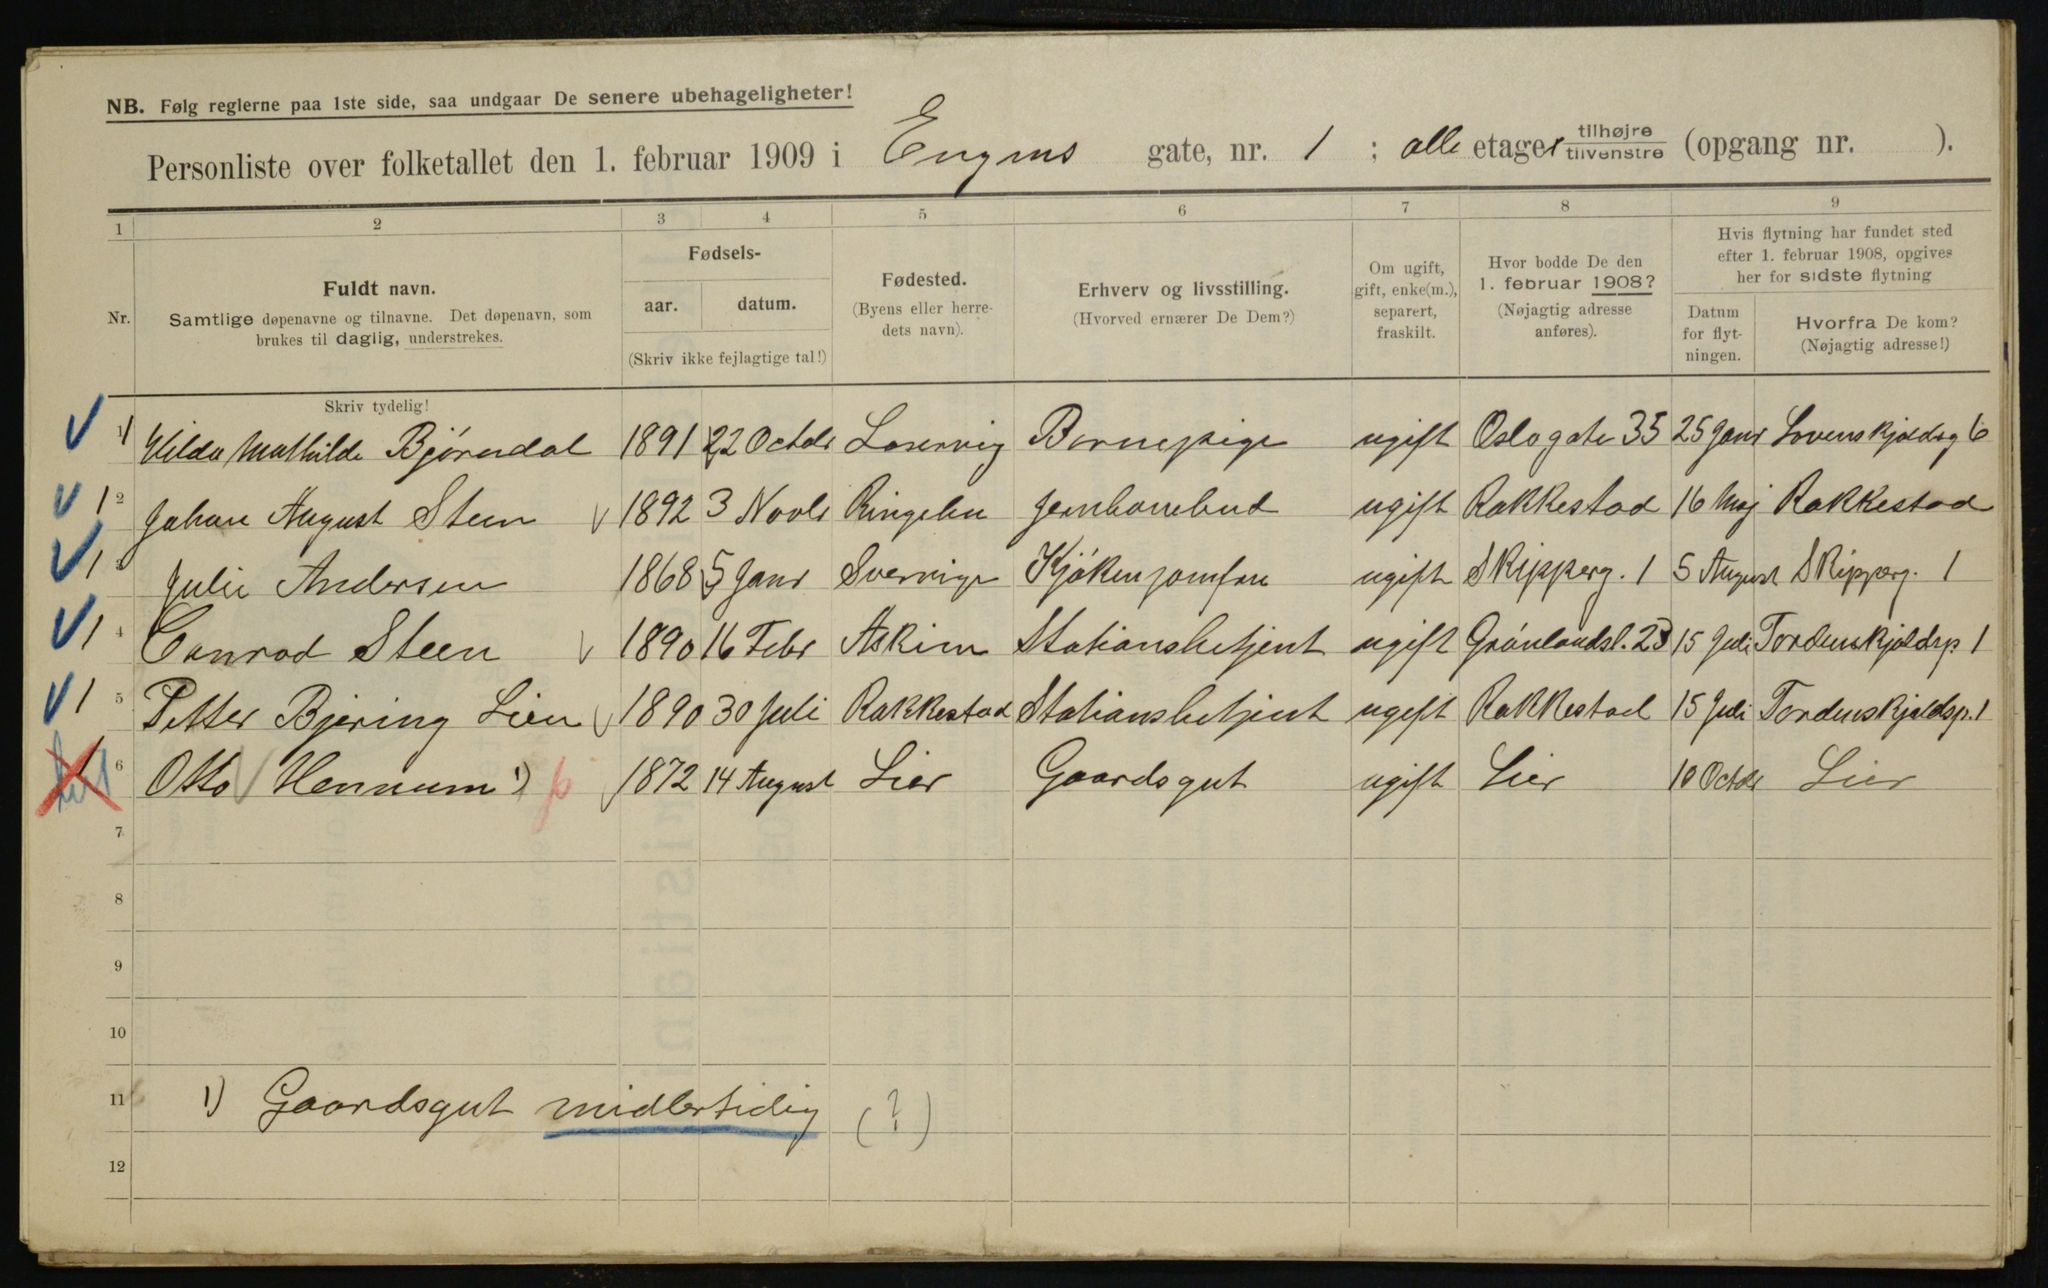 NB. Følg reglerne paa 1ste side, saa undgaar De senere ubehageligheter!
Personliste over folketallet den 1. februar 1909 i Engens gate, nr. 1 ; alle etager tilhøjre tilvenstre (opgang nr. ).
1 2 3 4 5 6 7 8 9
Nr.
Fuldt navn.
Samtlige døpenavne og tilnavne. Det døpenavn, som
brukes til daglig, understrekes.
Skriv tydelig!
Fødsels-
aar. datum.
(Skriv ikke fejlagtige tal!)
Fødested.
(Byens eller herre-
dets navn).
Erhverv og livsstilling.
(Hvorved ernærer De Dem?)
Om ugift,
gift, enke(m.),
separert,
fraskilt.
Hvor bodde De den
1. februar 1908?
(Nøjagtig adresse
anføres).
Hvis flytning har fundet sted
efter 1. februar 1908, opgives
her for sidste flytning
Datum
for flyt-
ningen.
Hvorfra De kom?
(Nøjagtig adresse!)
1 Hilda Mathilde Bjørndal 1891 22 Octbr Laurvig Barnepige ugift Oslo gate 35 25 Janr Lovenskjoldsg 6
1 2 Johan August Steen 1892 3 Novbr Ringebu Jernbanebud ugift Rakkestad 16 Maj Rakkestad
1 3 Julie Andersen 1868 5 Janr Sverrige Kjøkenjomfru ugift Skipperg. 1 5 August Skipperg. 1
1 4 Conrad Steen 1890 16 Febr Askim Stationsbetjent ugift Grønlandsl. 23 15 Juli Tordenskjoldsp. 1
1 5 Petter Bjering Lien 1890 30 Juli Rakkestad Stationsbetjent ugift Rakkestad 15 Juli Tordenskjoldsp. 1
6 Otto Hennum 1) 1872 14 August Lier Gaardsgut ugift Lier 10 Octbr Lier
7
8
9
10
11 1) Gaardsgut midlertidig (?)
12